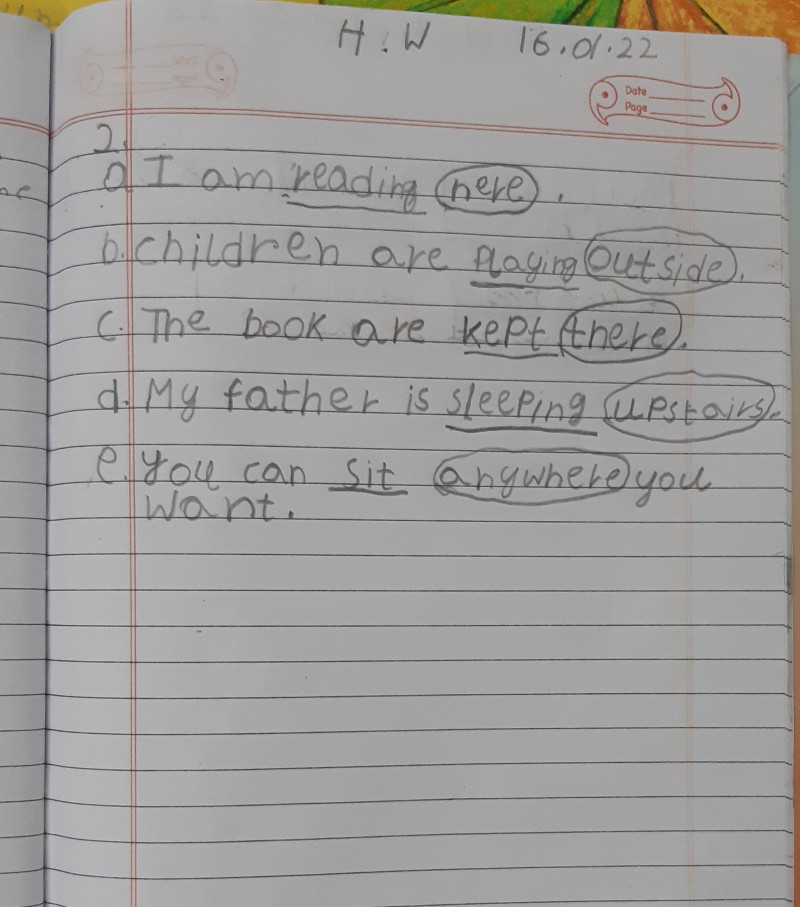 H.W 16.01.22
Date
Page
2.
a. I am reading here.
b. children are playing outside.
c. The book are kept there.
d. My father is sleeping upstairs.
e. you can sit anywhere you
want.